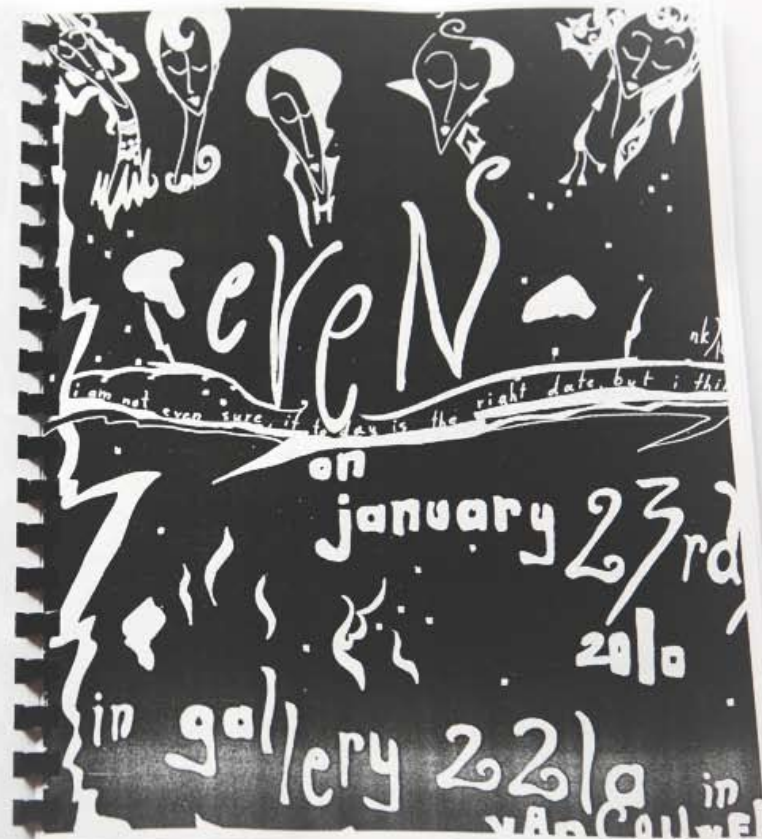 eveN
nk/
i am not even sure, if today is the right date, but i thi
on
january 23rd
2010
in gallery 221a in
vAnCouveR